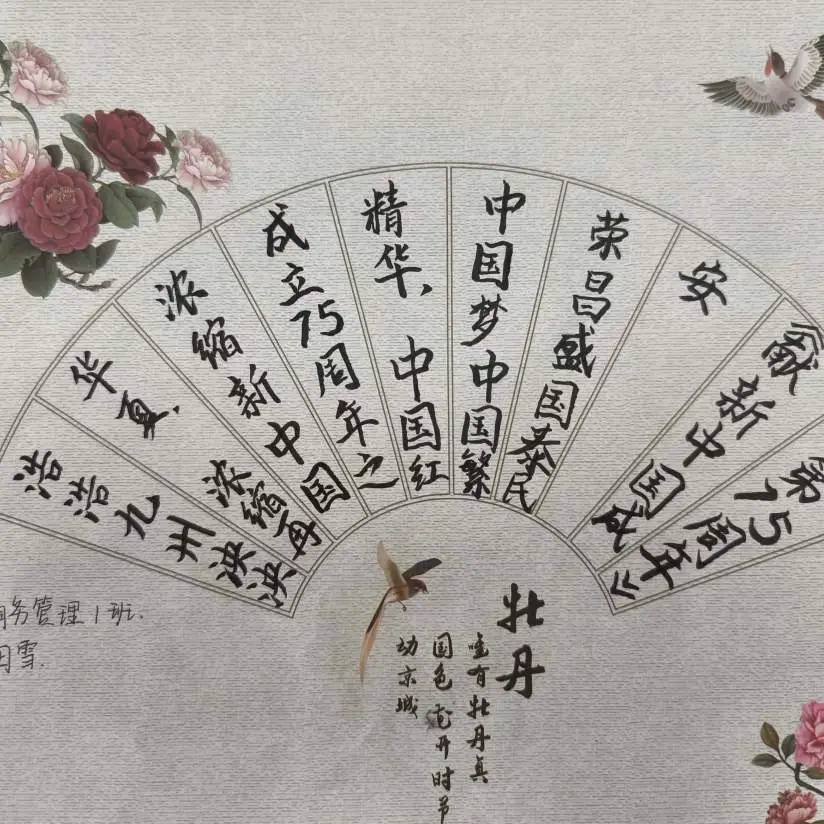 浩浩九州泱泱
华夏.浓缩再
浓缩新中国
成立75周年之
精华、中国红
中国梦中国繁
荣昌盛国泰民
安
献新中国成
第75周年》
牡丹
唯有牡丹真
国色花开时节
动京城
务管理1班.
雪.